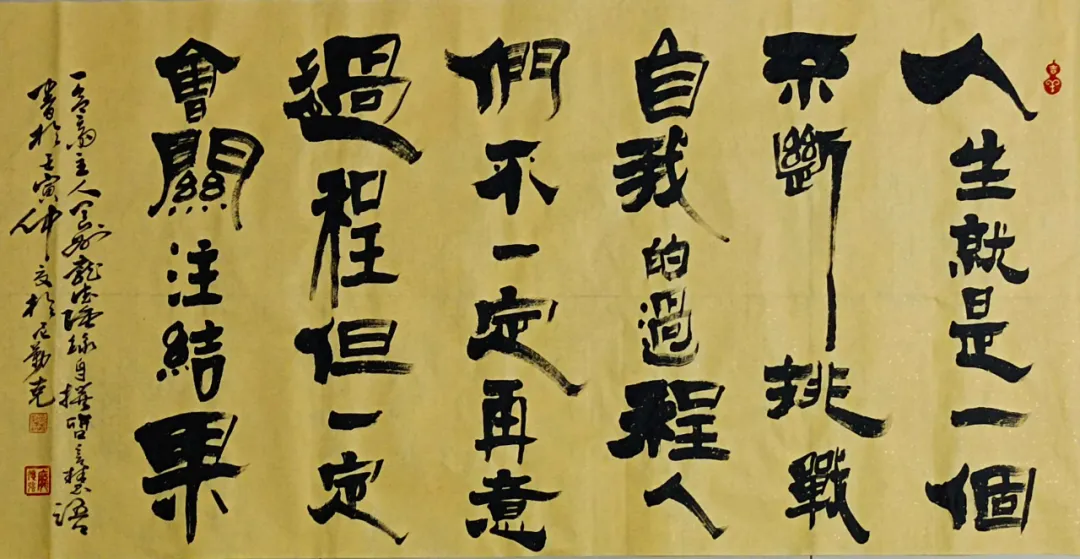 人生就是一個
不斷挑戰
自我的過程人
們不一定再意
過程但一定
會關注結果
主人 龍 錄自撰 語
書於壬寅仲夏於尼勒克